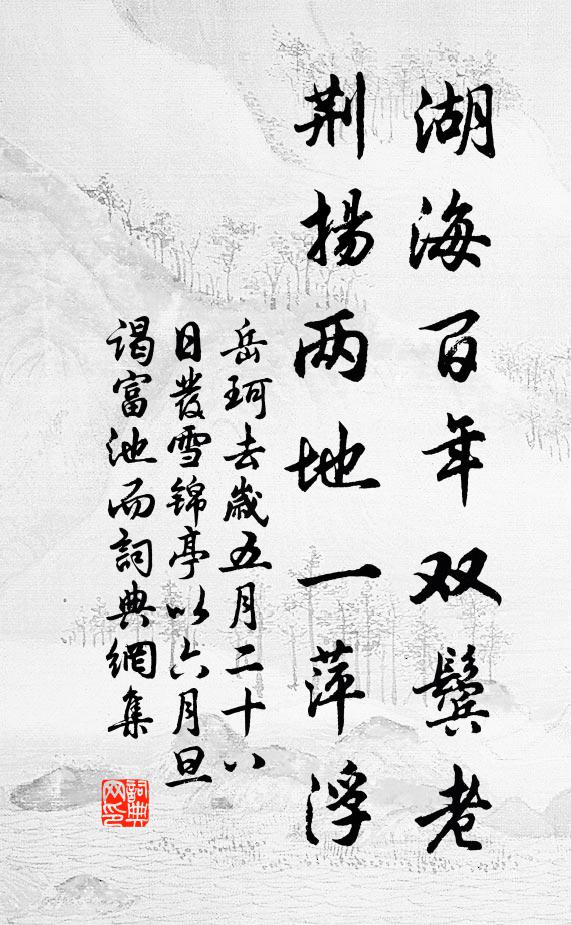 湖海百年双鬓老
荆揚两地一萍浮
岳珂去歲五月二十八
日發雪錦亭以六月旦
謁富池而詞典網集
詞典
网印